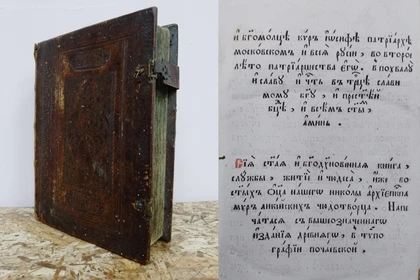 и҆ бг҃омолцѣ кѵ́рѣ і҆ѡ́сифѣ патрїа́рхѣ
моско́вскомъ и҆ всеѧ̀ рꙋсі́и, во второ́е
лѣ́то патрїа́ршества є҆гѡ̀. в̾ похвалꙋ̀
и҆ сла́вꙋ и҆ чⷭ҇ть в̾ трⷪ҇цѣ сла́ви
момꙋ бг҃ꙋ, и҆ прест҃ѣ́й
бцⷣѣ, и҆ всѣ́мъ ст҃ы̑мъ,
а҆ми́нь.
Сїѧ̀ ст҃а́ѧ и҆ бг҃одꙋхнове́ннаѧ кни́га,
слꙋ́жбы, житїѐ и҆ чюдеса̀, и҆́же во
ст҃ы́хъ ѻ҆ц҃а̀ на́шего нико́лы а҆рхїепⷭ҇кпа
мѵ́ръ ликі́йскихъ чюдотво́рца. Напе
ча́тасѧ с̾ вышеозначе́ннагѡ
и҆зда́нїѧ дре́внѧгѡ, в̾ тѵпо
гра́фїи поча́евской.